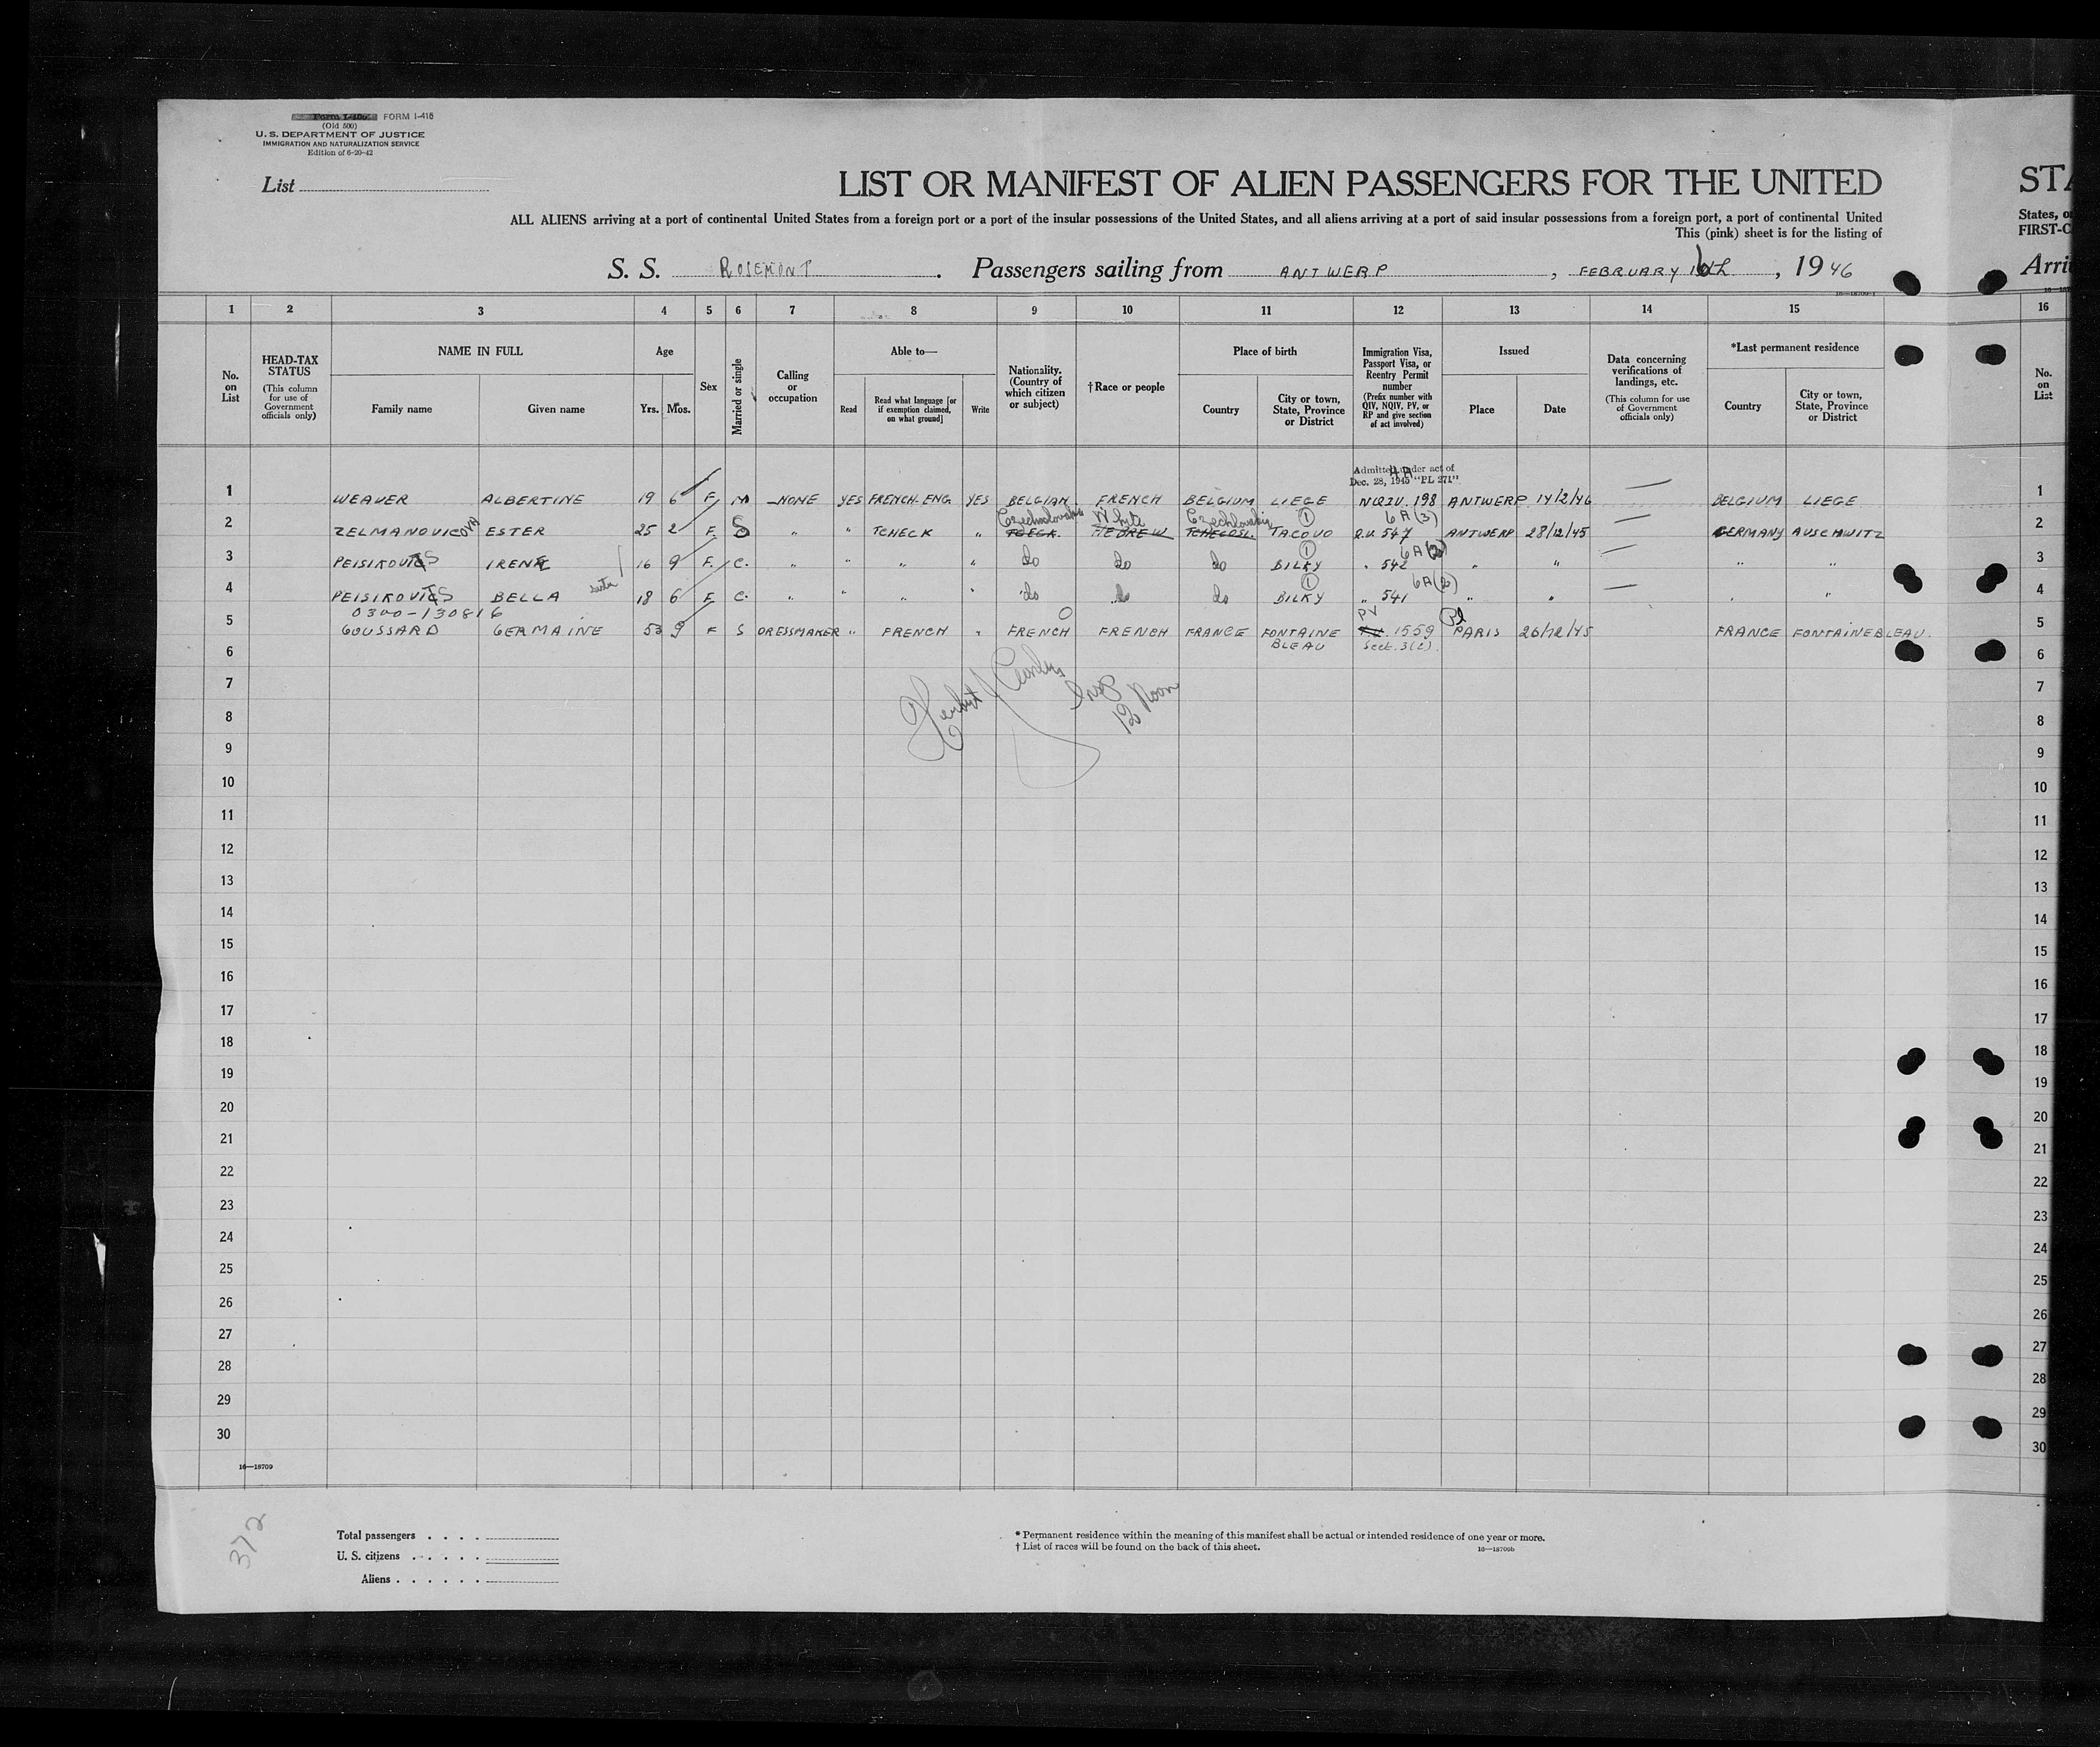 Form I-406 FORM I-415
(Old 500)
U. S. DEPARTMENT OF JUSTICE
IMMIGRATION AND NATURALIZATION SERVICE
Edition of 6-20-42
List
LIST OR MANIFEST OF ALIEN PASSENGERS FOR THE UNITED STA
ALL ALIENS arriving at a port of continental United States from a foreign port or a port of the insular possessions of the United States, and all aliens arriving at a port of said insular possessions from a foreign port, a port of continental United States, o
This (pink) sheet is for the listing of FIRST-C
S. S. ROSEMONT. Passengers sailing from ANTWERP, FEBRUARY 16th, 1946 Arri
1 2 3 4 5 6 7 8 9 10 11 12 13 14 15 16
No. on List
HEAD-TAX STATUS (This column for use of Government officials only)
NAME IN FULL Family name Given name
Age Yrs. Mos.
Sex
Married or single
Calling or occupation
Able to— Read Read what language [or if exemption claimed, on what ground] Write
Nationality. (Country of which citizen or subject)
†Race or people
Place of birth Country City or town, State, Province or District
Immigration Visa, Passport Visa, or Reentry Permit number (Prefix number with QIV, NQIV, PV, or RP and give section of act involved)
Issued Place Date
Data concerning verifications of landings, etc. (This column for use of Government officials only)
*Last permanent residence Country City or town, State, Province or District
No. on List
Admitted under act of 4A
Dec. 28, 1945 "PL 271"
1 WEAVER ALBERTINE 19 6 F. M NONE YES FRENCH-ENG YES BELGIAN FRENCH BELGIUM LIEGE NQIV. 198 ANTWERP 14/2/46 — BELGIUM LIEGE 1
Czechoslovakia White Czechlovakia 1 6A(3)
2 ZELMANOVICOVA ESTER 25 2 F. S " " TCHECK " TCECK. HEBREW TCHECOSL. TACOVO Q.V. 547 ANTWERP 28/12/45 — GERMANY AUSCHWITZ 2
1 6A(2)
3 PEISIKOVICS IRENE 16 9 F. C. " " " " do do do BILKY " 542 " " — " " 3
1 6A(2)
4 PEISIKOVICS BELLA 18 6 F. C. " " " " do do do BILKY " 541 " " — " " 4
0300-130816 PV
5 GOUSSARD GERMAINE 53 9 F S DRESSMAKER " FRENCH " FRENCH FRENCH FRANCE FONTAINE 1559 PARIS 26/12/45 FRANCE FONTAINEBLEAU. 5
BLEAU Sect. 3(2)
6 6
7 Insp 7
8 12 Noon 8
9 9
10 10
11 11
12 12
13 13
14 14
15 15
16 16
17 17
18 18
19 19
20 20
21 21
22 22
23 23
24 24
25 25
26 26
27 27
28 28
29 29
30 30
16—18709
372
Total passengers
U. S. citizens
Aliens
* Permanent residence within the meaning of this manifest shall be actual or intended residence of one year or more.
† List of races will be found on the back of this sheet.
16—18709b